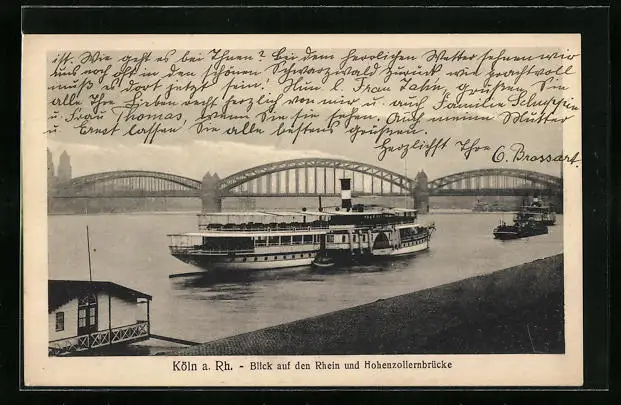 ist. Wie geht es bei Ihnen? Bei dem herrlichen Wetter sehnen wir
uns noch oft in den schönen Schwarzwald zurück, wie prachtvoll
muß es dort jetzt sein. Nun l. Frau Jahn, grüßen Sie
alle Ihre Lieben recht herzlich von mir u. auch Familie
u. Frau Thomas, wenn Sie sie sehen. Auch meine Mutter
u. Ernst lassen Sie alle bestens grüßen.
Herzlichst Ihre G. Brossart.
Köln a. Rh. - Blick auf den Rhein und Hohenzollernbrücke